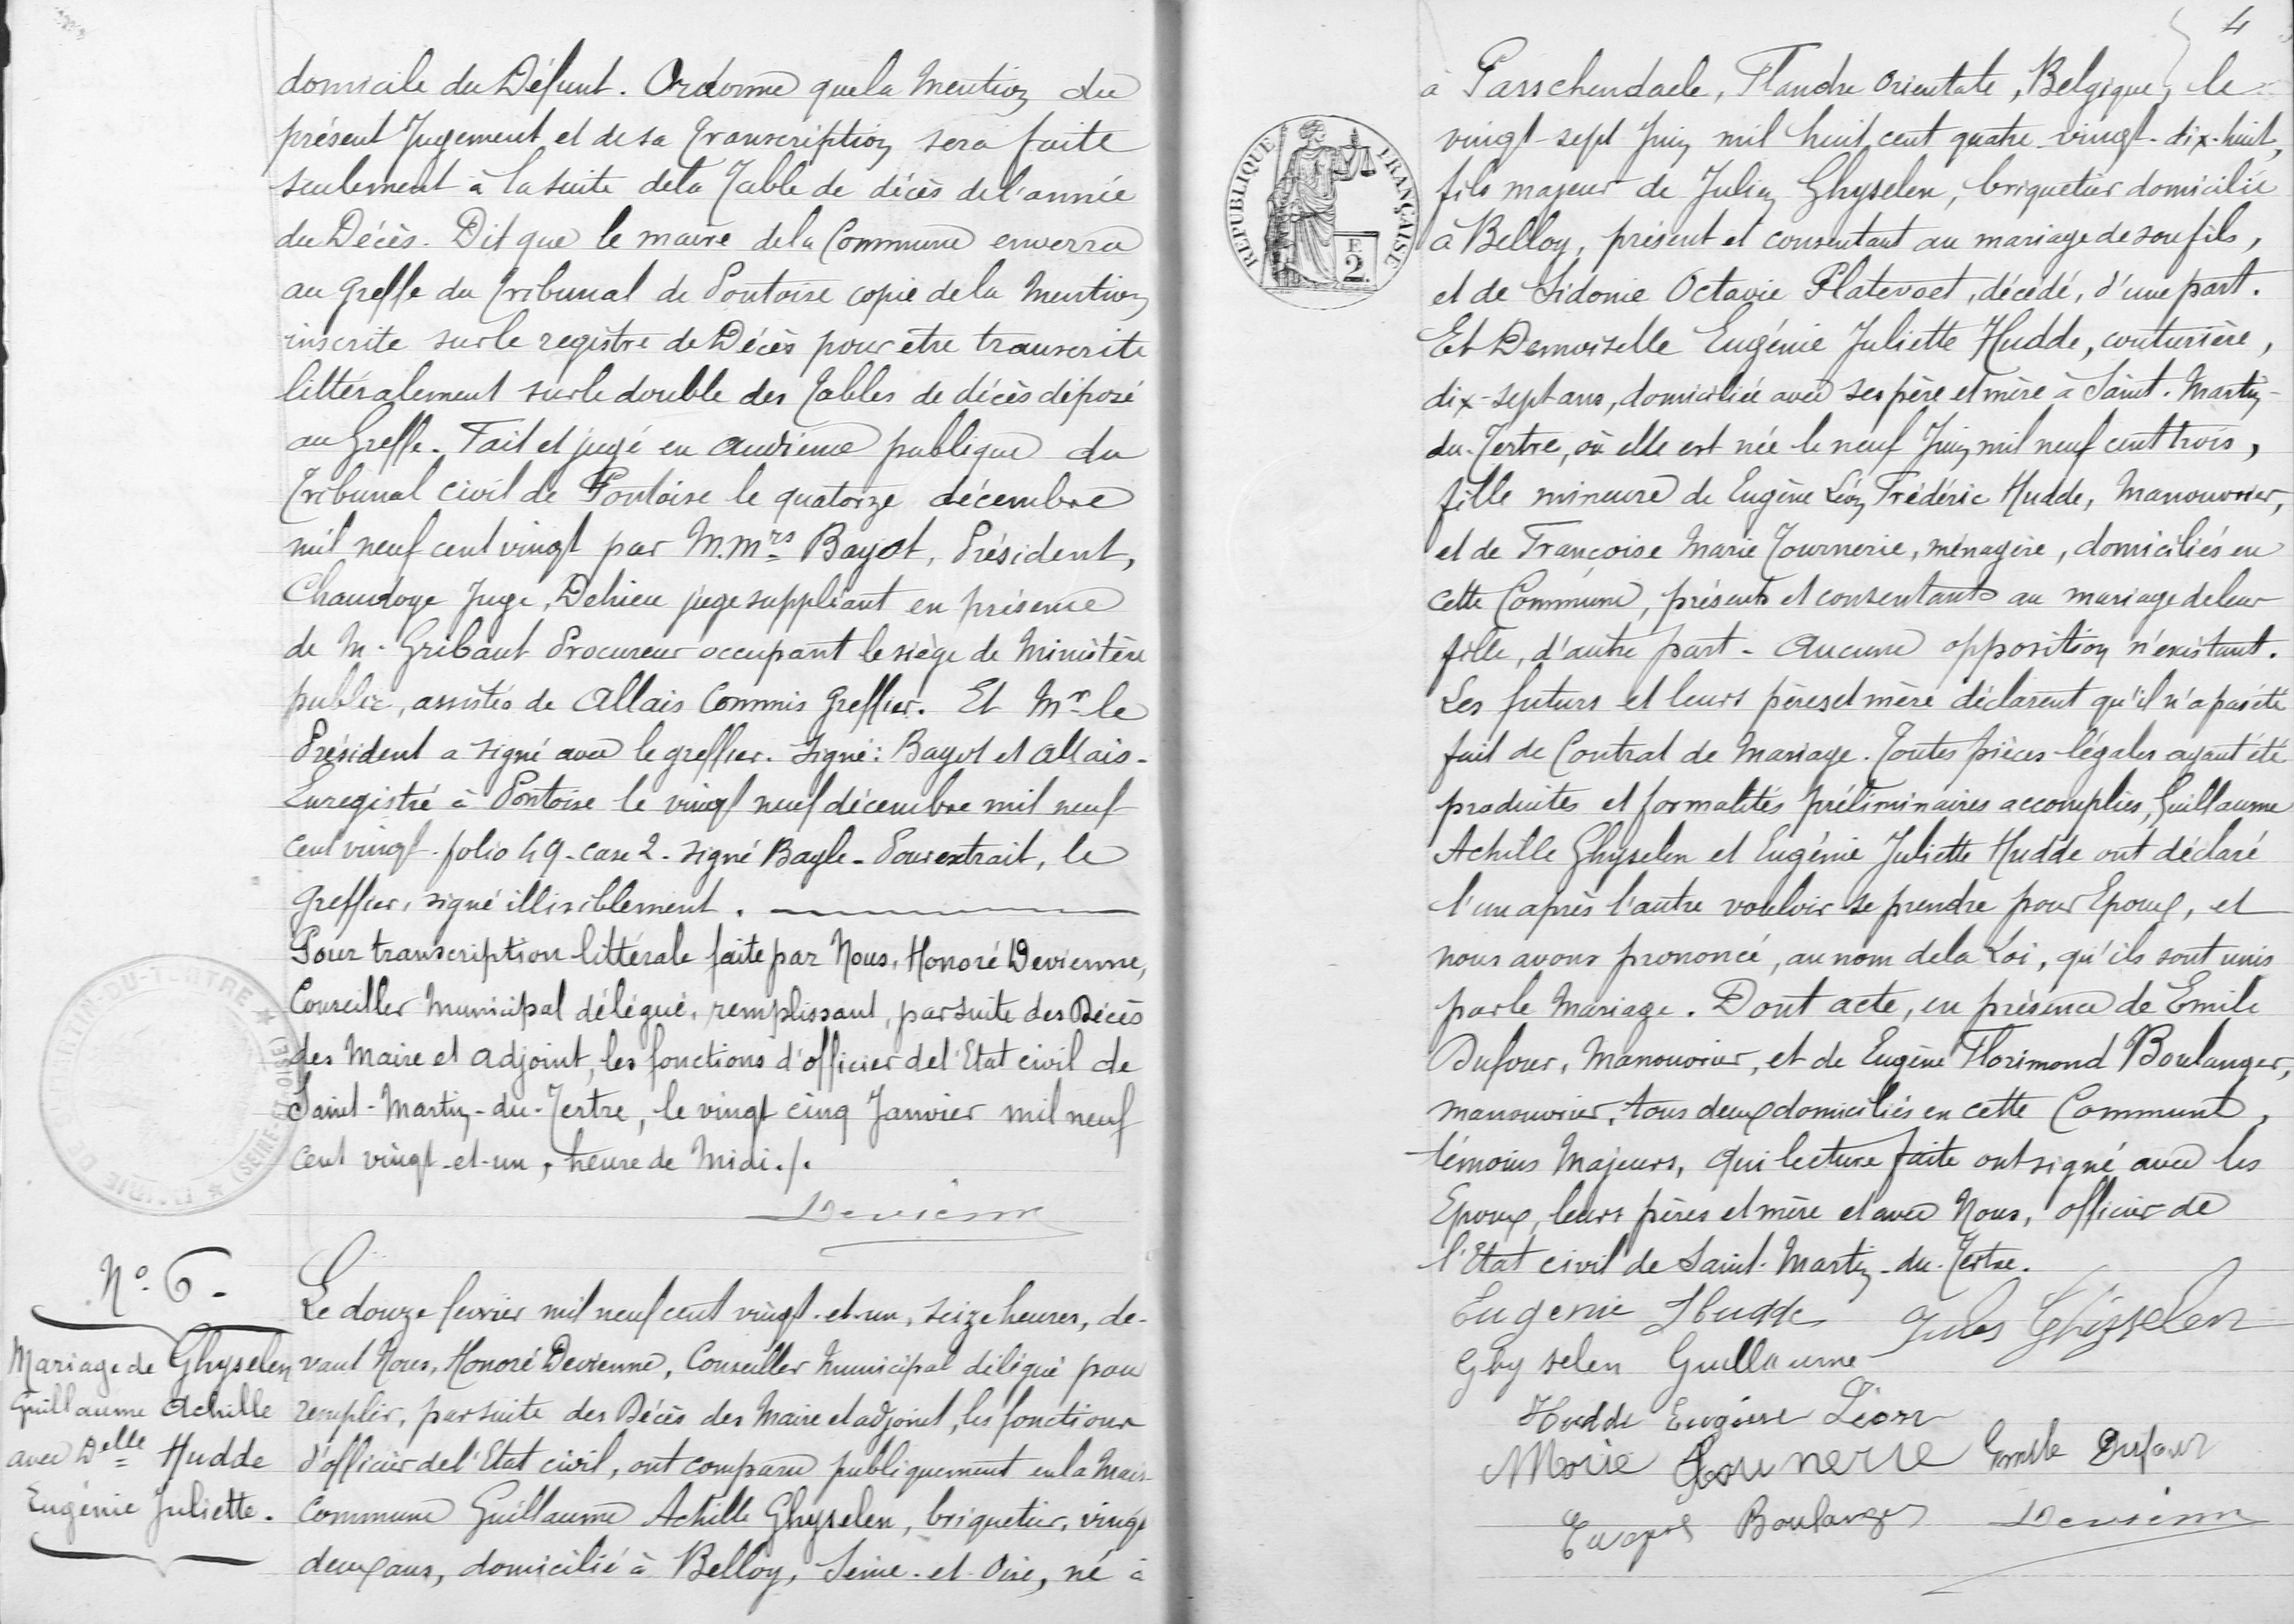 domicile du Défunt. Ordonne que la Mention du
présent Jugement et de sa Transcription sera faite
seulement à la suite de la Table de décès de l'année
du Décès. Dit que le maire de la Commune enverra
au Greffe du Tribunal de Pontoise copie de la Mention
inscrite sur le registre de Décès pour etre transcrite
littéralement sur le double des Tables de décès déposé
au Greffe. Fait et jugé en audience publique du
Tribunal civil de Pontoise le quatorze décembre
mil neuf cent vingt par M.mrs Bayot, Président,
Chaudoge Juge, Dehieu juge suppléant en présence
de M. Gribaut Procureur occupant le siège de Ministère
public, assistés de Allais Commis Greffier. Et Mr le
Président a signé avec le greffier. Signé: Bayot et Allais.
Enregistré à Pontoise le vingt neuf décembre mil neuf
cent vingt. folio 49. case 2. signé Bayle. Pour extrait, le
Greffier, signé illisiblement.
Pour transcription littérale faite par Nous, Honoré Devienne,
Conseiller Municipal délégué, remplissant, par suite des Décès
des Maire et adjoint, les fonctions d'officier de l'Etat civil de
Saint-Martin-du-Tertre, le vingt cinq Janvier mil neuf
cent vingt-et-un, heure de Midi./.
Devienne
N° 6.
Mariage de Ghyselen
Guillaume Achille
avec Delle Hudde
Eugénie Juliette.
Le douze février mil neuf cent vingt-et-un, seize heures, de-
vant Nous, Honoré Devienne, Conseiller Municipal délégué pour
remplir, par suite des Décès des Maire et adjoint, les fonctions
d'officier de l'Etat civil, ont comparu publiquement en la Mais.
Commune Guillaume Achille Ghyselen, briquetier, vingt
deux ans, domicilié à Belloy, Seine-et-Oise, né à
4
à Passchendaele, Flandre Orientale, Belgique, le
vingt-sept Juin mil huit cent quatre-vingt-dix-huit,
fils majeur de Julien Ghyselen, briquetier domicilié
à Belloy, présent et consentant au mariage de son fils,
et de Sidonie Octavie Platevoet, décédé, d'une part.
Et Demoiselle Eugénie Juliette Hudde, couturière,
dix-sept ans, domiciliée avec ses père et mère à Saint-Martin-
du-Tertre, où elle est née le neuf Juin mil neuf cent trois,
fille mineure de Eugène Léon Frédéric Hudde, Manouvrier,
et de Françoise Marie Tournerie, ménagère, domiciliés en
cette Commune, présents et consentants au mariage de leur
fille, d'autre part. Aucune opposition n'existant.
Les futurs et leurs pères et mère déclarent qu'il n'a pas été
fait de Contrat de Mariage. Toutes pièces légales ayant été
produites et formalités préliminaires accomplies, Guillaume
Achille Ghyselen et Eugénie Juliette Hudde ont déclaré
l'un après l'autre vouloir se prendre pour Epoux, et
nous avons prononcé, au nom de la Loi, qu'ils sont unis
par le Mariage. Dont acte, en présence de Emile
Dufour, Manouvrier, et de Eugène Florimond Boulanger,
manouvrier, tous deux domiciliés en cette Commune,
témoins Majeurs, qui lecture faite ont signé avec les
Epoux, leurs pères et mère et avec Nous, officier de
l'Etat civil de Saint-Martin-du-Tertre.
Eugenie Hudde Jules Ghysselen
Ghyselen Guillaume
Hudde Eugène Léon
Marie Tournerie Emile Dufour
Eugène Boulanger Devienne
REPUBLIQUE FRANÇAISE
2